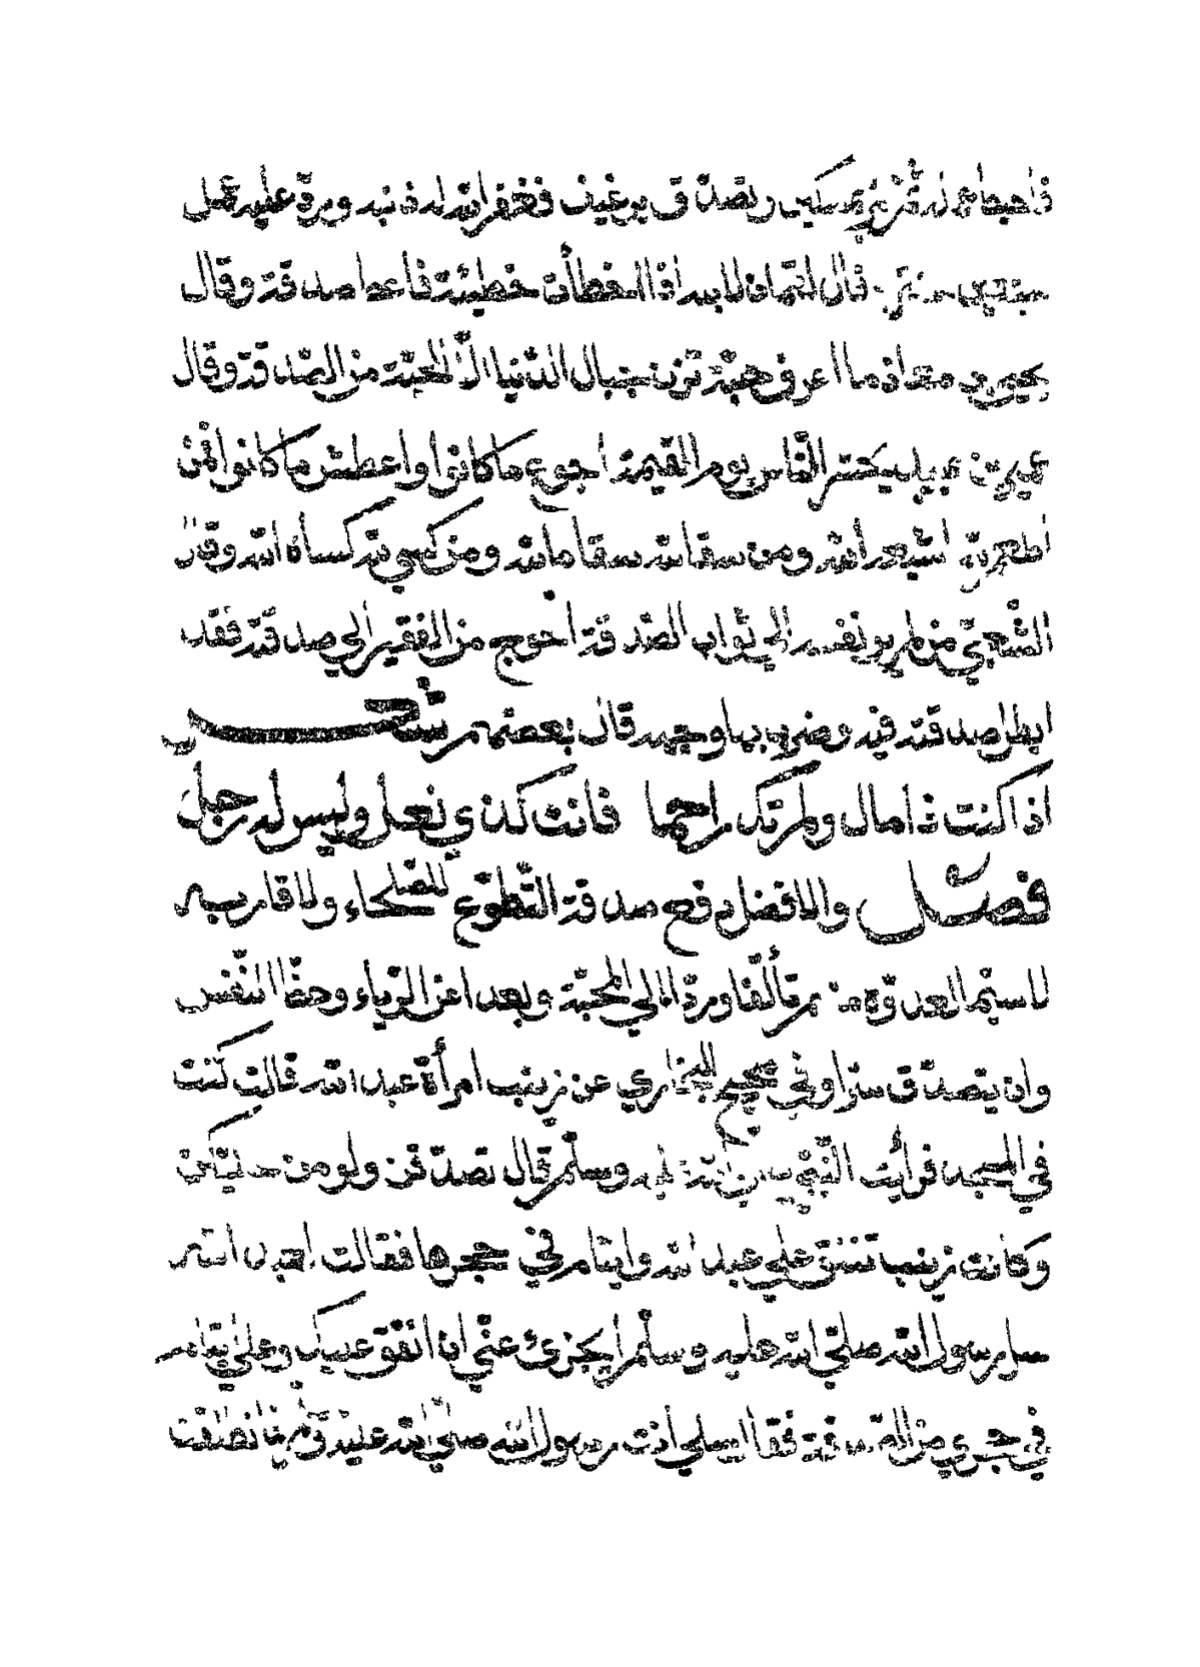 فاحبط عمله ثم مر بمسكين وتصدق برغيف فغفر الله له ذنبه ورد عليه عمل
سبعين سنة قال لقمان لابنه اذا اخطأت خطيئة فاعط صدقة وقال
يحيى بن معاذ ما اعرف حبة تزن جبال الدنيا الا الحبة من الصدقة وقال
عبيد بن عمير يحشر الناس يوم القيمة اجوع ما كانوا واعطش ما كانوا فمن
اطعم لله اشبعه الله ومن سقا لله سقاه الله ومن كسي لله كساه الله وقال
الشعبي من لم ير نفسه الي ثواب الصدقة احوج من الفقير الي صدقته فقد
ابطل صدقته وضرب بها وجهه قال بعضهم شعر
اذا كنت ذا مال ولم تك راحما فانت كذي نعل وليس له رجل
فصل والافضل دفع صدقة التطوع للصلحاء ولاقاربه
لا سيما العدوة منهم تألفا وردا الي المحبة وبعدا عن الرياء وحظ النفس
وان يتصدق سرا وفي صحيح البخاري عن زينب امرأة عبد الله قالت كنت
في المسجد فرأيت النبي صلي الله عليه وسلم قال تصدقن ولو من حليكن
وكانت زينب تنفق علي عبد الله وايتام في حجرها فقالت لعبد الله
سل رسول الله صلي الله عليه وسلم ايجزئ عني ان انفق عليك وعلي ايتام
في حجري من الصدقة فقال سلي انت رسول الله صلي الله عليه وسلم فانطلقت